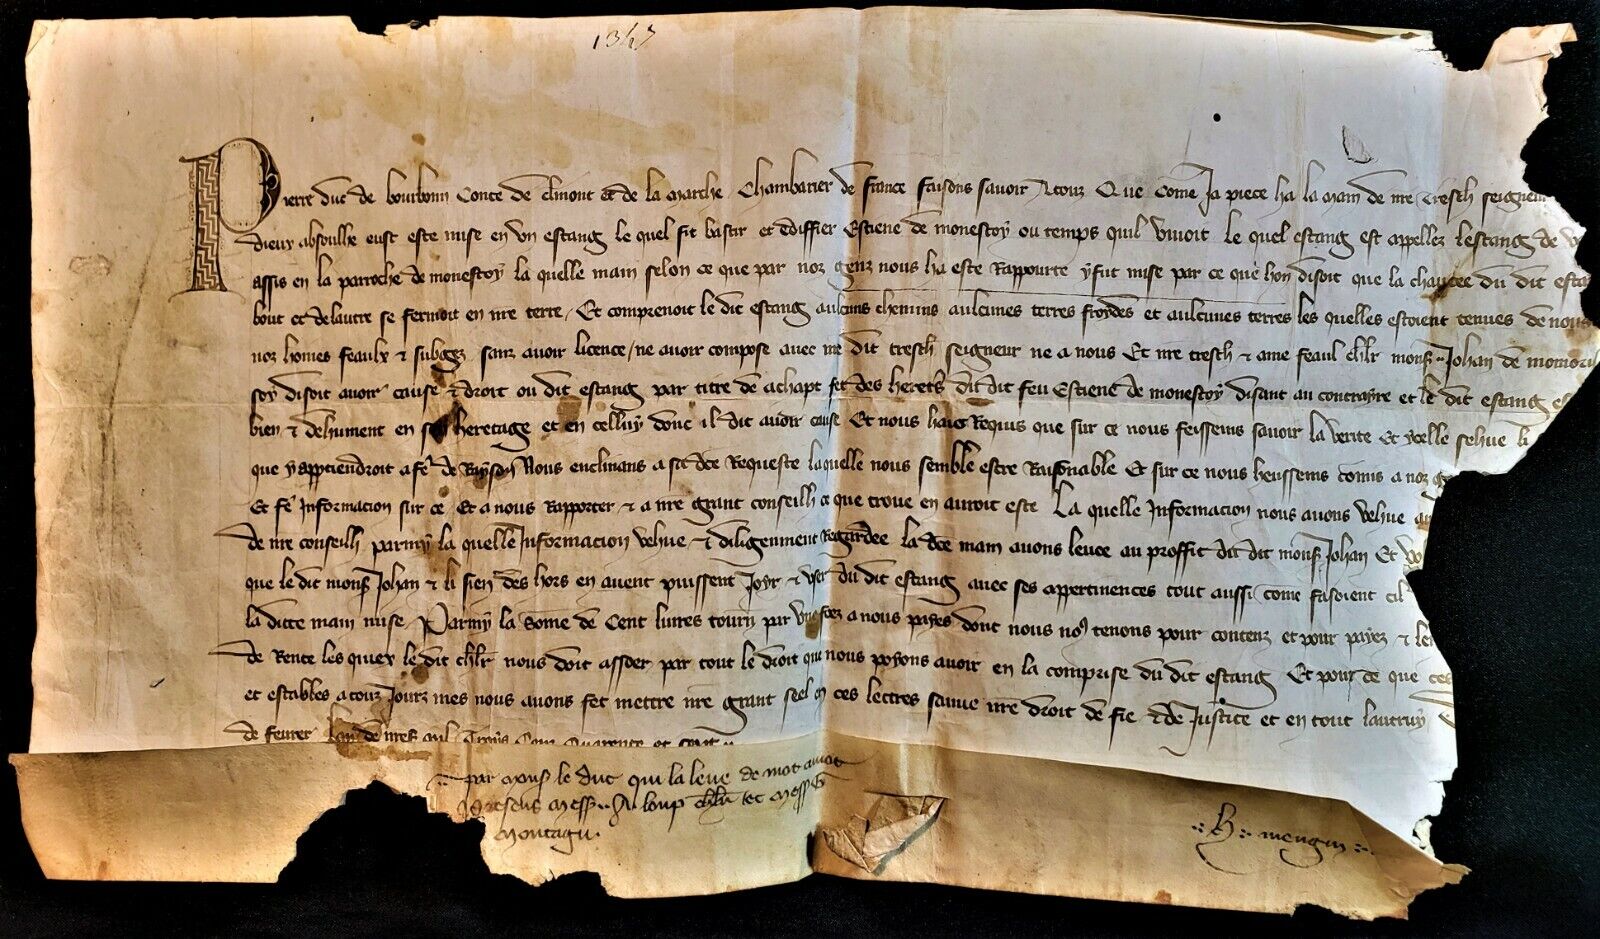 1347
Pierre duc de bourbonn Conte de clmont et de la marche Chambarier de france faisons savoir a touz Que come Ja piece ha la main de nre tresch seigneur
dieux absoulhe eust este mise en vn estang le quel fit bastir et ediffier Estiene de monestoy ou temps quil viuoit le quel estang est appellez lestang de
assis en la parroche de monestoy la quelle main selon ce que par noz genz nous ha este Rapporte y fut mise par ce que hon disoit que la chaucee du dit esta
bout et delautre se fermoit en nre terre / Et comprenoit le dit estang aulcuns chemins aulcunes terres froydes et aulcunes terres les quelles estoient tenues de nous
noz homes feaulx & subgez sanz auoir licence / ne auoir compose auec nre dit tresch seigneur ne a nous Et nre tresch & ame feaul chlr mons Johan de
soy disoit auoir cause & droit ou dit estang par titre de achapt fet des herets du dit feu Estiene de monestoy disant au contrayre et le dit estang
bien & dehument en son heretage et en celluy dont il dit auoir cause Et nous haie Requis que sur ce nous feissems sauoir la verite Et ycelle sehue li
que y apptiendroit a fe de Rayson Nous enclinans a sa dce Requeste laquelle nous semble estre Raisonable Et sur ce nous heussems comis a noz
Et fe Informacion sur ce Et a nous Rapporter & a nre grant conseilh ce que troue en auroit este La quelle Informacion nous auons vehue
de nre conseilh parmy la quelle Informacion vehue & diligenment Regardee la dce main auons leuee au proffit du dit mons Johan Et
que le dit mons Johan & li sien des hors en auent puissent Joyr & vser du dit estang auec ses appertinences tout aussi come fasoient
la dicte main mise Parmy la some de Cent liures tourn par a nous payes dont nous no9 tenons pour contenz et pour payez &
de Rente les quiex le dit chlr nous doit assder par tout le droit que nous poyons auoir en la comprise du dit estang Et pour ce que
et estables a touz Jourz mes nous auons fet mettre nre grant seel en ces lettres sauue nre droit de fie & de Justice et en tout lautruy
de feurer lan de mil Troys Cenz Quarente et
par mons le duc qui la leue de mot a mot
presens mess loup chlr et mess G
Montagu
H mengin